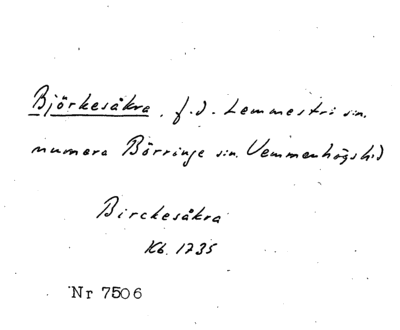 Björkesåkra, f.d. Lemmeströ sn.
numera Börringe sn. Vemmenhögs hd
Birckesåkra
Kb. 1735
Nr 7506